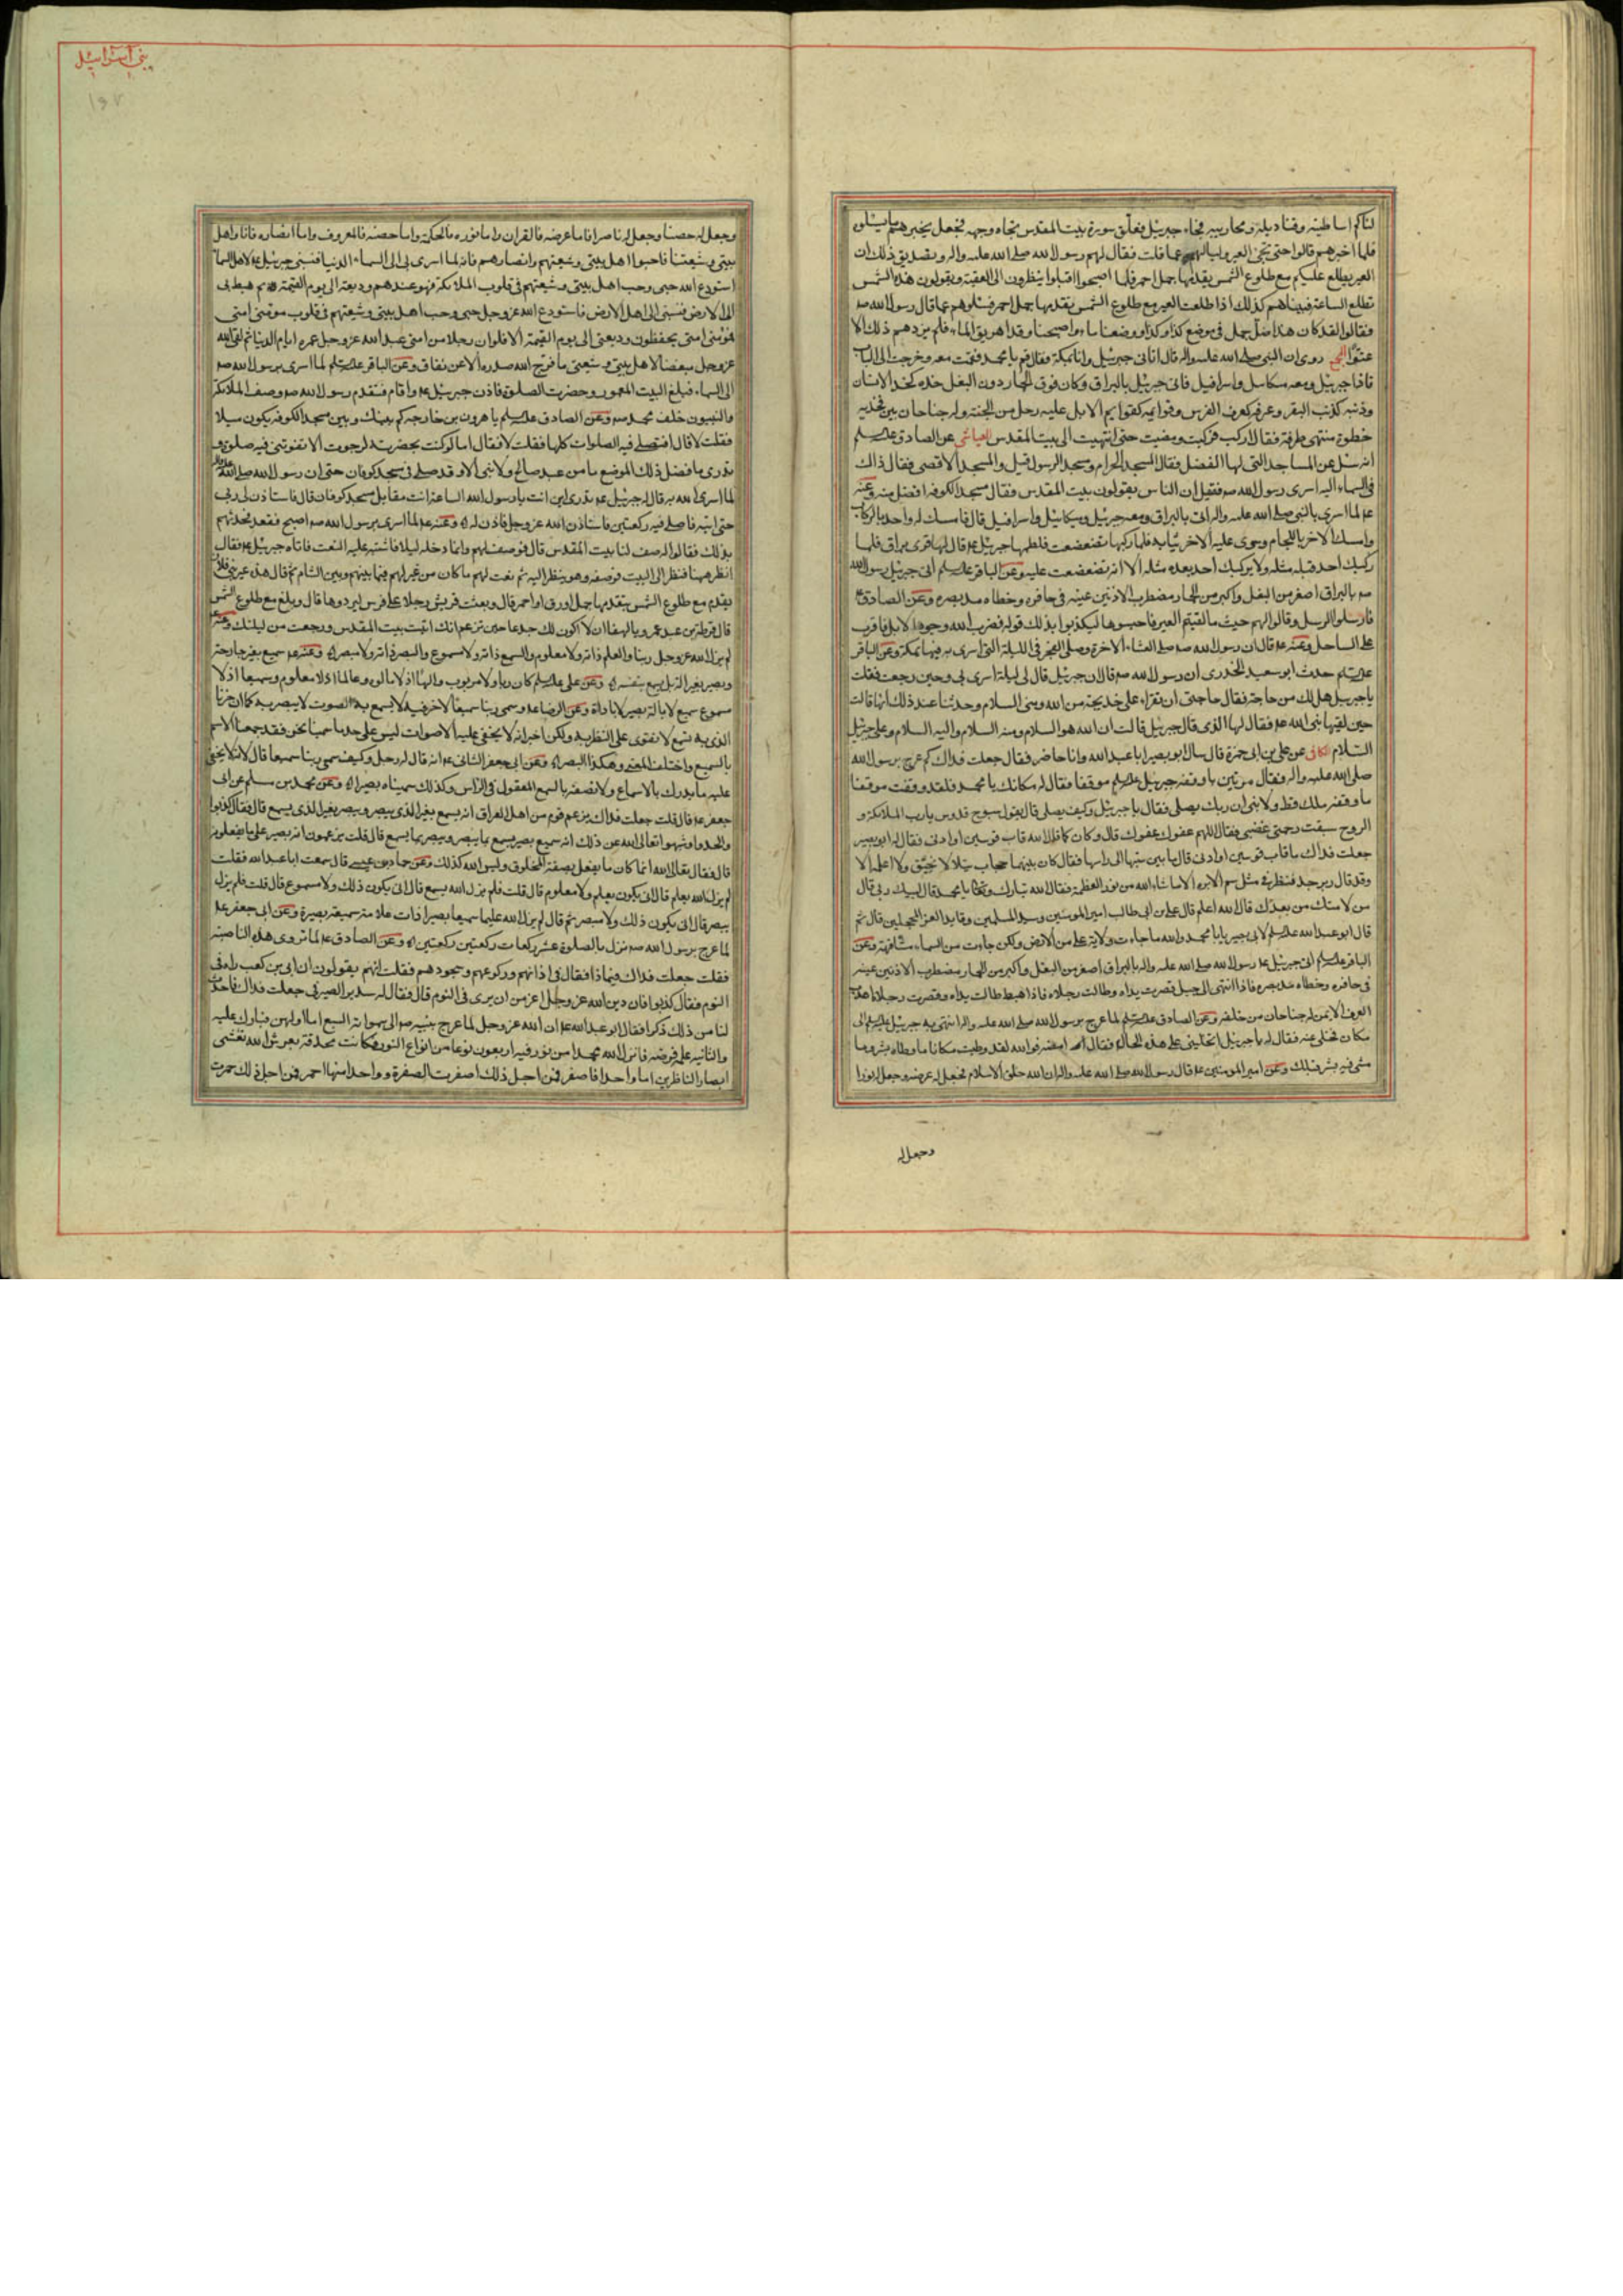 لناكم اساطينه وقناديله ومحاريبه فجاء جبرئيل فعلق صورة بيت المقدس تجاه وجهه فجعل يخبرهم بما يسئلونه
فلما اخبرهم قالوا حتى تجئ العير ونسألهم عما قلت فقال لهم رسول الله صلى الله عليه واله وتصديق ذلك ان
العير يطلع عليكم مع طلوع الشمس يقدمها جمل احمر فلما اصبحوا اقبلوا ينظرون الى العقبة ويقولون هذه الشمس
تطلع الساعة فبيناهم كذلك اذا طلعت العير مع طلوع الشمس يقدمها جمل احمر فسئلوهم عما قال رسول الله صه
فقالوا لقد كان هذا ضل جمل فى موضع كذا وكذا ووضعنا ماء واصبحنا وقد اهريق الماء فلم يزدهم ذلك الا
عتوا روى ان النبى صلى الله عليه واله قال اتانى جبرئيل وانا بمكة فقال قم يا محمد فقمت معه وخرجت الى الباب
فاذا جبرئيل ومعه ميكائيل واسرافيل فاتى جبرئيل بالبراق وكان فوق الحمار دون البغل خده كخد الانسان
وذنبه كذنب البقر وعرفه كعرف الفرس وقوائمه كقوايم الابل عليه رحل من الجنة وله جناحان بين فخذيه
خطوه منتهى طرفه فقال اركب فركبت ومضيت حتى انتهيت الى بيت المقدس العياشى عن الصادق عليه السلم
انه سئل عن المساجد التى لها الفضل فقال المسجد الحرام ومسجد الرسول قيل والمسجد الاقصى فقال ذاك
فى السماء اليه اسرى رسول الله صه فقيل ان الناس يقولون بيت المقدس فقال مسجد الكوفة افضل منه وعنه
عه لما اسرى بالنبى صلى الله عليه واله اتى بالبراق ومعه جبرئيل وميكائيل واسرافيل قال فامسك له واحد بالركاب
وامسك الاخر باللجام وسوى عليه الاخر ثيابه فلما ركبها تضعضعت فلطمها جبرئيل عه قال لها قرى براق فلما
ركبك احد قبله مثله ولا يركبك احد بعده مثله الا انه تضعضعت عليه وعن الباقر عليه السلم اتى جبرئيل رسول الله
صه بالبراق اصغر من البغل واكبر من الحمار مضطرب الاذنين عينه فى حافره وخطاه مد بصره وعن الصادق عه
فارسلوا الرسل وقالوا لهم حيث ما لقيتم العير فاحبسوها ليكذبوا بذلك قوله فضرب الله وجوه الابل فاقرب
على الساحل وعنه عه قال ان رسول الله صه صلى العشاء الاخرة وصلى الفجر فى الليلة التى اسرى به فيها بمكة وعن الباقر
عليه السلم حدث ابو سعيد الخدرى ان رسول الله صه قال ان جبرئيل قال لى ليلة اسرى بى وحين رجعت فقلت
يا جبرئيل هل لك من حاجة فقال حاجتى ان تقراء على خديجة من الله ومنى السلام وحدثنا عند ذلك انها قالت
حين لقيها نبى الله عه فقال لها الذى قال جبرئيل قالت ان الله هو السلام ومنه السلام واليه السلام وعلى جبرئيل
السلام الكافى عن على بن ابى حمزة قال سال ابو بصير ابا عبد الله وانا حاضر فقال جعلت فداك كم عرج برسول الله
صلى الله عليه واله فقال مرتين فاوقفه جبرئيل عليه السلم موقفا فقال له مكانك يا محمد فلقد وقفت موقفا
ما وقفه ملك قط ولا نبى ان ربك يصلى فقال يا جبرئيل وكيف يصلى قال يقول سبوح قدوس يا رب الملائكة و
الروح سبقت رحمتى غضبى فقال اللهم عفوك عفوك قال وكان كما قال الله قاب قوسين او ادنى فقال له ابو بصير
جعلت فداك ما قاب قوسين او ادنى قال ما بين سيتها الى راسها فقال كان بينهما حجاب يتلالا يخفق ولا اعلمه الا
وقد قال زبرجد فنظر فى مثل سم الابرة الى ما شاء الله من نور العظمة فقال الله تبارك وتعالى يا محمد قال لبيك ربى قال
من لامتك من بعدك قال الله اعلم قال على بن ابى طالب امير المومنين وسيد المسلمين وقايد الغر المحجلين قال ثم
قال ابو عبد الله عليه السلم لابى بصير يابا محمد والله ما جاءت ولاية على من الارض ولكن جاءت من السماء مشافهة وعن
الباقر عليه السلم اتى جبرئيل عه رسول الله صلى الله عليه واله بالبراق اصغر من البغل واكبر من الحمار مضطرب الاذنين عينه
فى حافره وخطاه مد بصره فاذا انتهى الى جبل قصرت يداه وطالت رجلاه فاذا هبط طالت يداه وقصرت رجلاه اهدب
العرف الايمن له جناحان من خلفه وعن الصادق عليه السلم لما عرج برسول الله صلى الله عليه واله انتهى به جبرئيل عليه السلم الى
مكان فخلى عنه فقال له يا جبرئيل اتخلينى على هذه الحال فقال امضه فوالله لقد وطيت مكانا ما وطاه بشر وما
مشى فيه بشر قبلك وعن امير المومنين عه قال رسول الله صلى الله عليه واله ان الله خلق الاسلام فجعل له عرصة وجعل له نورا
وجعل له
بنى اسرائيل
وجعل له حصنا وجعل له ناصرا فاما عرصته فالقران واما نوره فالحكمة واما حصنه فالمعروف واما انصاره فانا واهل
بيتى وشيعتنا فاحبوا اهل بيتى وشيعتهم وانصارهم فانه لما اسرى بى الى السماء الدنيا فنسبنى جبرئيل عه لاهل السماء
استودع الله حبى وحب اهل بيتى وشيعتهم فى قلوب الملائكة فهو عندهم وديعة الى يوم القيمة ثم هبط بى
الى الارض فنسبنى الى اهل الارض فاستودع الله عز وجل حبى وحب اهل بيتى وشيعتهم فى قلوب مومنى امتى
فمومنى امتى يحفظون وديعتى الى يوم القيمة الا فلو ان رجلا من امتى عبد الله عز وجل عمره ايام الدنيا ثم لقى الله
عز وجل مبغضا لاهل بيتى وشيعتى ما فرج الله صدره الا عن نفاق وعن الباقر عليه السلم لما اسرى برسول الله صه
الى السماء فبلغ البيت المعمور وحضرت الصلوة فاذن جبرئيل عه واقام فتقدم رسول الله صه وصف الملائكة
والنبيون خلف محمد صه وعن الصادق عليه السلم يا هرون بن خارجه كم بينك وبين مسجد الكوفه يكون ميلا
فقلت لا قال افتصلى فيه الصلوات كلها فقلت لا فقال اما لو كنت بحضرته لرجوت الا تفوتنى فيه صلوة و
تدرى ما فضل ذلك الموضع ما من عبد صالح ولا نبى الا وقد صلى فى مسجد كوفان حتى ان رسول الله صلى الله عليه واله
لما اسرى الله به قال له جبرئيل عه تدرى اين انت يا رسول الله الساعة انت مقابل مسجد كوفان قال فاستاذن لى ربى
حتى اتيه فاصلى فيه ركعتين فاستاذن الله عز وجل فاذن له وعنه عه لما اسرى برسول الله صه اصبح فقعد فحدثهم
بذلك فقالوا له صف لنا بيت المقدس قال فوصف لهم وانما دخله ليلا فاشتبه عليه النعت فاتاه جبرئيل عه فقال
انظر ههنا فنظر الى البيت فوصفه وهو ينظر اليه ثم نعت لهم ما كان من عير لهم فيما بينهم وبين الشام ثم قال هذه عير بنى فلان
يقدم مع طلوع الشمس يتقدمها جمل اورق او احمر قال وبعثت قريش رجلا على فرس ليردوها قال وبلغ مع طلوع الشمس
قال قرطة بن عبد عمرو يا لهفا ان لا اكون لك جدعا حين تزعم انك اتيت بيت المقدس ورجعت من ليلتك وعنه
لم يزل الله عز وجل ربنا والعلم ذاته ولا معلوم والسمع ذاته ولا مسموع والبصر ذاته ولا مبصر وعنه عه سميع بغير جارحة
وبصير بغير الة بل يسمع بنفسه وعن على عليه السلم كان ربا ولا مربوب والها اذ لا مالوه وعالما اذ لا معلوم وسميعا اذ لا
مسموع سميع لا بالة بصير لا باداة وعن الرضا عه وسمى ربنا سميعا لا بخرت فيه لا يسمع به الصوت لا يبصر به كما ان خرتنا
الذى به نسمع لا نقوى على النظر به ولكن اخبر انه لا يخفى عليه الاصوات ليس على حد ما سمينا نحن فقد جمعنا الاسم
بالسميع واختلف المعنى وهكذا البصر وعن ابى جعفر الثانى عه انه قال له رجل وكيف سمى ربنا سميعا قال لانه لا يخفى
عليه ما يدرك بالاسماع ولا نصفه بالسمع المعقول فى الراس وكذلك سميناه بصيرا وعن محمد بن مسلم عن ابى
جعفر عه قال قلت جعلت فداك يزعم قوم من اهل العراق انه يسمع بغير الذى يبصر ويبصر بغير الذى يسمع قال فقال كذبوا
والحدوا وشبهوا تعالى الله عن ذلك انه سميع بصير يسمع بما يبصر ويبصر بما يسمع قال قلت يزعمون انه بصير على ما يعقلونه
قال فقال تعالى الله انما كان ما يعقل بصفة المخلوق وليس الله كذلك وعن حماد بن عيسى قال سمعت ابا عبد الله فقلت
لم يزل الله يعلم قال انى يكون يعلم ولا معلوم قال قلت فلم يزل الله يسمع قال انى يكون ذلك ولا مسموع قال قلت فلم يزل
يبصر قال انى يكون ذلك ولا مبصر ثم قال لم يزل الله عليما سميعا بصيرا ذات علامة سميعة بصيرة وعن ابى جعفر عه
لما عرج برسول الله صه نزل بالصلوة عشر ركعات ركعتين ركعتين وعن الصادق عه لما تروى هذه الناصبة
فقلت جعلت فداك فيماذا فقال فى اذانهم وركوعهم وسجودهم فقلت انهم يقولون ان ابى بن كعب راه فى
النوم فقال كذبوا فان دين الله عز وجل اعز من ان يرى فى النوم قال فقال له سدير الصيرفى جعلت فداك فاحدث
لنا من ذلك ذكرا فقال ابو عبد الله عه ان الله عز وجل لما عرج بنبيه صه الى سمواته السبع اما اولهن فبارك عليه
والثانيه علمه فرضه فانزل الله محملا من نور فيه اربعون نوعا من انواع النور كانت محدقة بعرش الله تغشى
ابصار الناظرين اما واحد فاصفر فمن اجل ذلك اصفرت الصفرة وواحد منها احمر فمن اجل ذلك احمرت